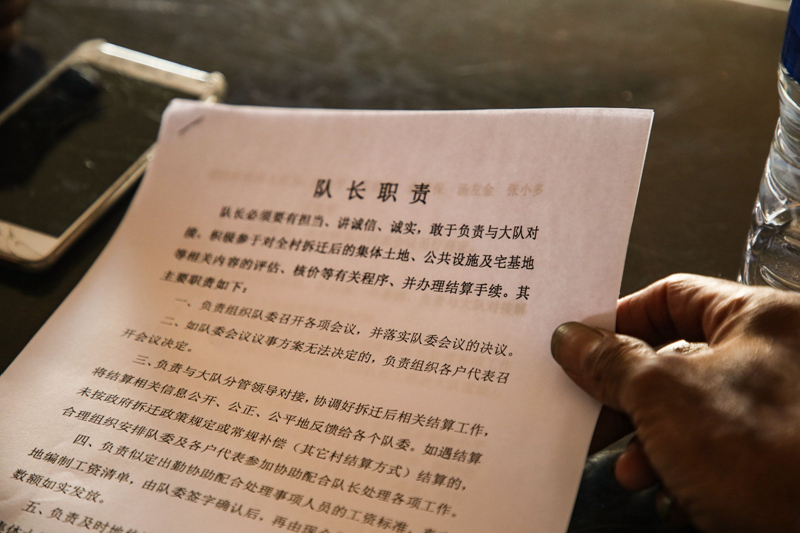 队长职责
队长必须要有担当、讲诚信、诚实，敢于负责与大队对
接。积极参于对全村拆迁后的集体土地、公共设施及宅基地
等相关内容的评估、核价等有关程序、并办理结算手续。其
主要职责如下：
一、负责组织队委召开各项会议，并落实队委会议的决议。
二、如队委会议议事方案无法决定的，负责组织各户代表召
开会议决定。
三、负责与大队分管领导对接，协调好拆迁后相关结算工作，
将结算相关信息公开、公正、公平地反馈给各个队委。如遇结算
未按政府拆迁政策规定或常规补偿（其它村结算方式）结算的，
合理组织安排队委及各户代表参加协助配合队长处理各项工作。
四、负责似定出勤协助配合处理事项人员的工资标准，
地编制工资清单，由队委签字确认后，再由现金
数额如实发放。
五、负责及时地
集体